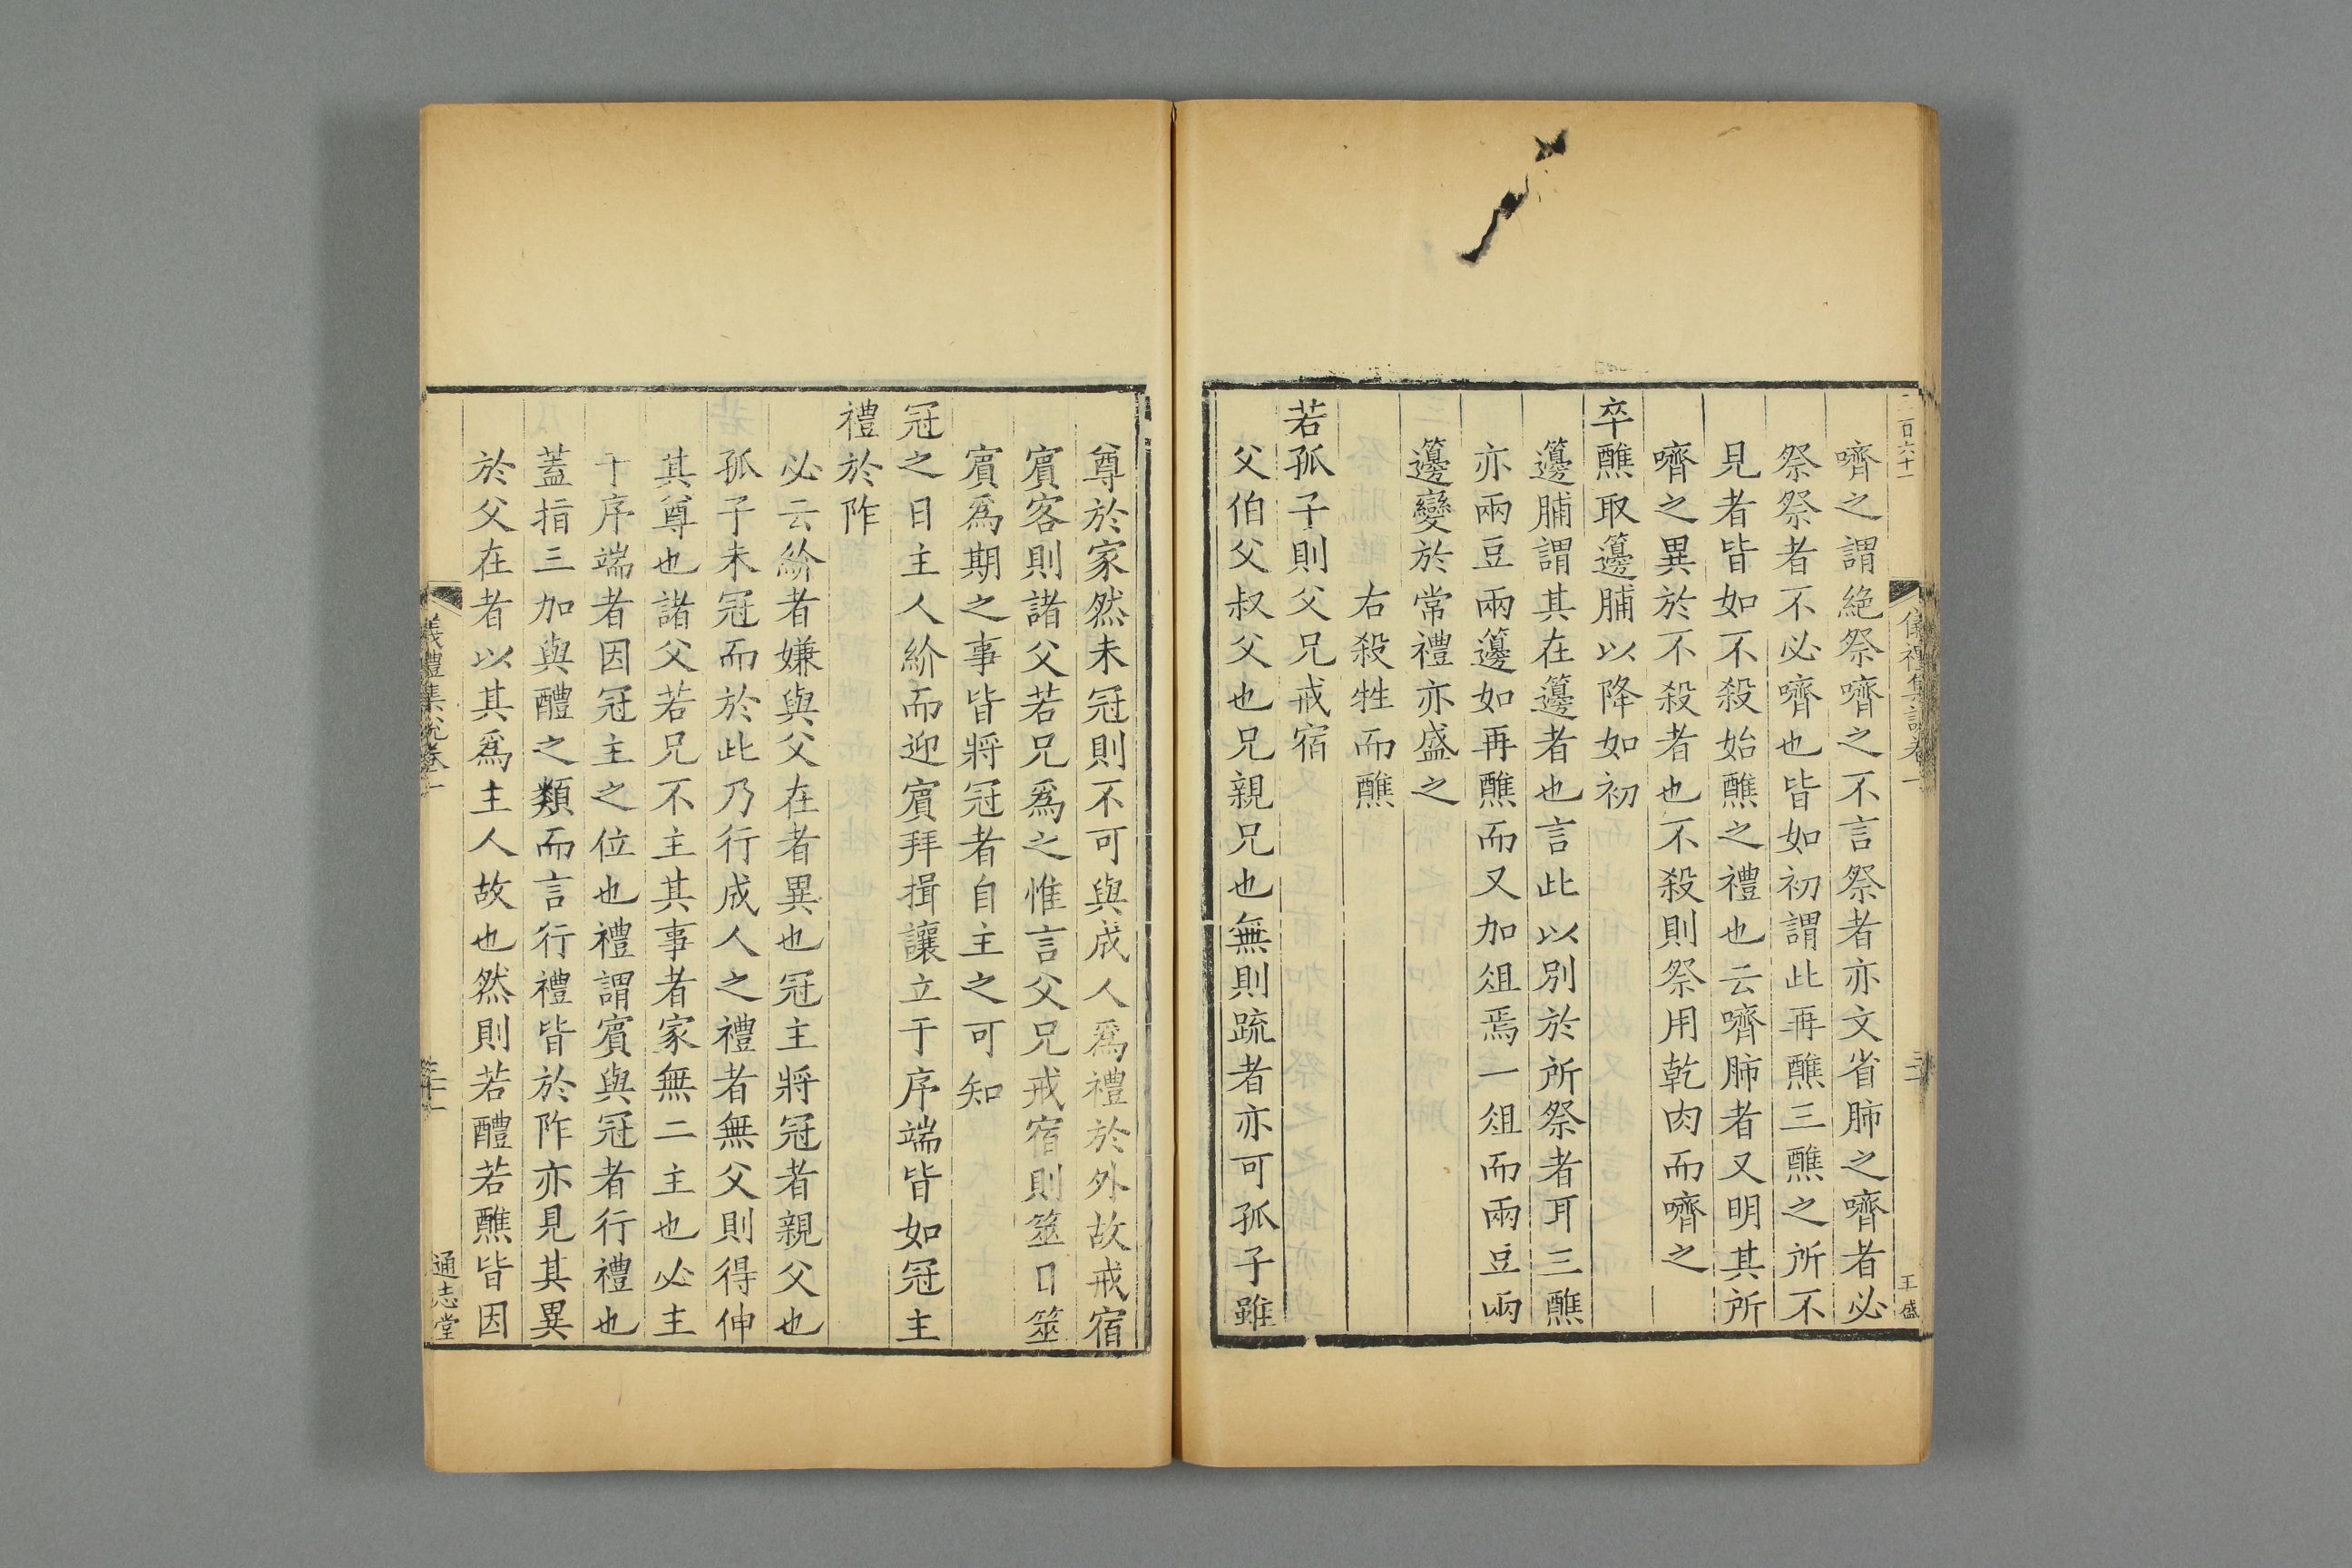 二百六十一
儀禮集說卷一
三十
王盛
嚌之謂絶祭嚌之不言祭者亦文省肺之嚌者必
祭祭者不必嚌也皆如初謂此再醮三醮之所不
見者皆如不殺始醮之禮也云嚌肺者又明其所
嚌之異於不殺者也不殺則祭用乾肉而嚌之
卒醮取籩脯以降如初
籩脯謂其在籩者也言此以別於所祭者耳三醮
亦兩豆兩籩如再醮而又加俎焉一俎而兩豆兩
籩變於常禮亦盛之
右殺牲而醮
若孤子則父兄戒宿
父伯父叔父也兄親兄也無則疏者亦可孤子雖
尊於家然未冠則不可與成人爲禮於外故戒宿
賓客則諸父若兄爲之惟言父兄戒宿則筮日筮
賓爲期之事皆將冠者自主之可知
冠之日主人紒而迎賓拜揖讓立于序端皆如冠主
禮於阼
必云紒者嫌與父在者異也冠主將冠者親父也
孤子未冠而於此乃行成人之禮者無父則得伸
其尊也諸父若兄不主其事者家無二主也必主
于序端者因冠主之位也禮謂賓與冠者行禮也
蓋指三加與醴之類而言行禮皆於阼亦見其異
於父在者以其爲主人故也然則若醴若醮皆因
儀禮集說卷一
三十一
通志堂